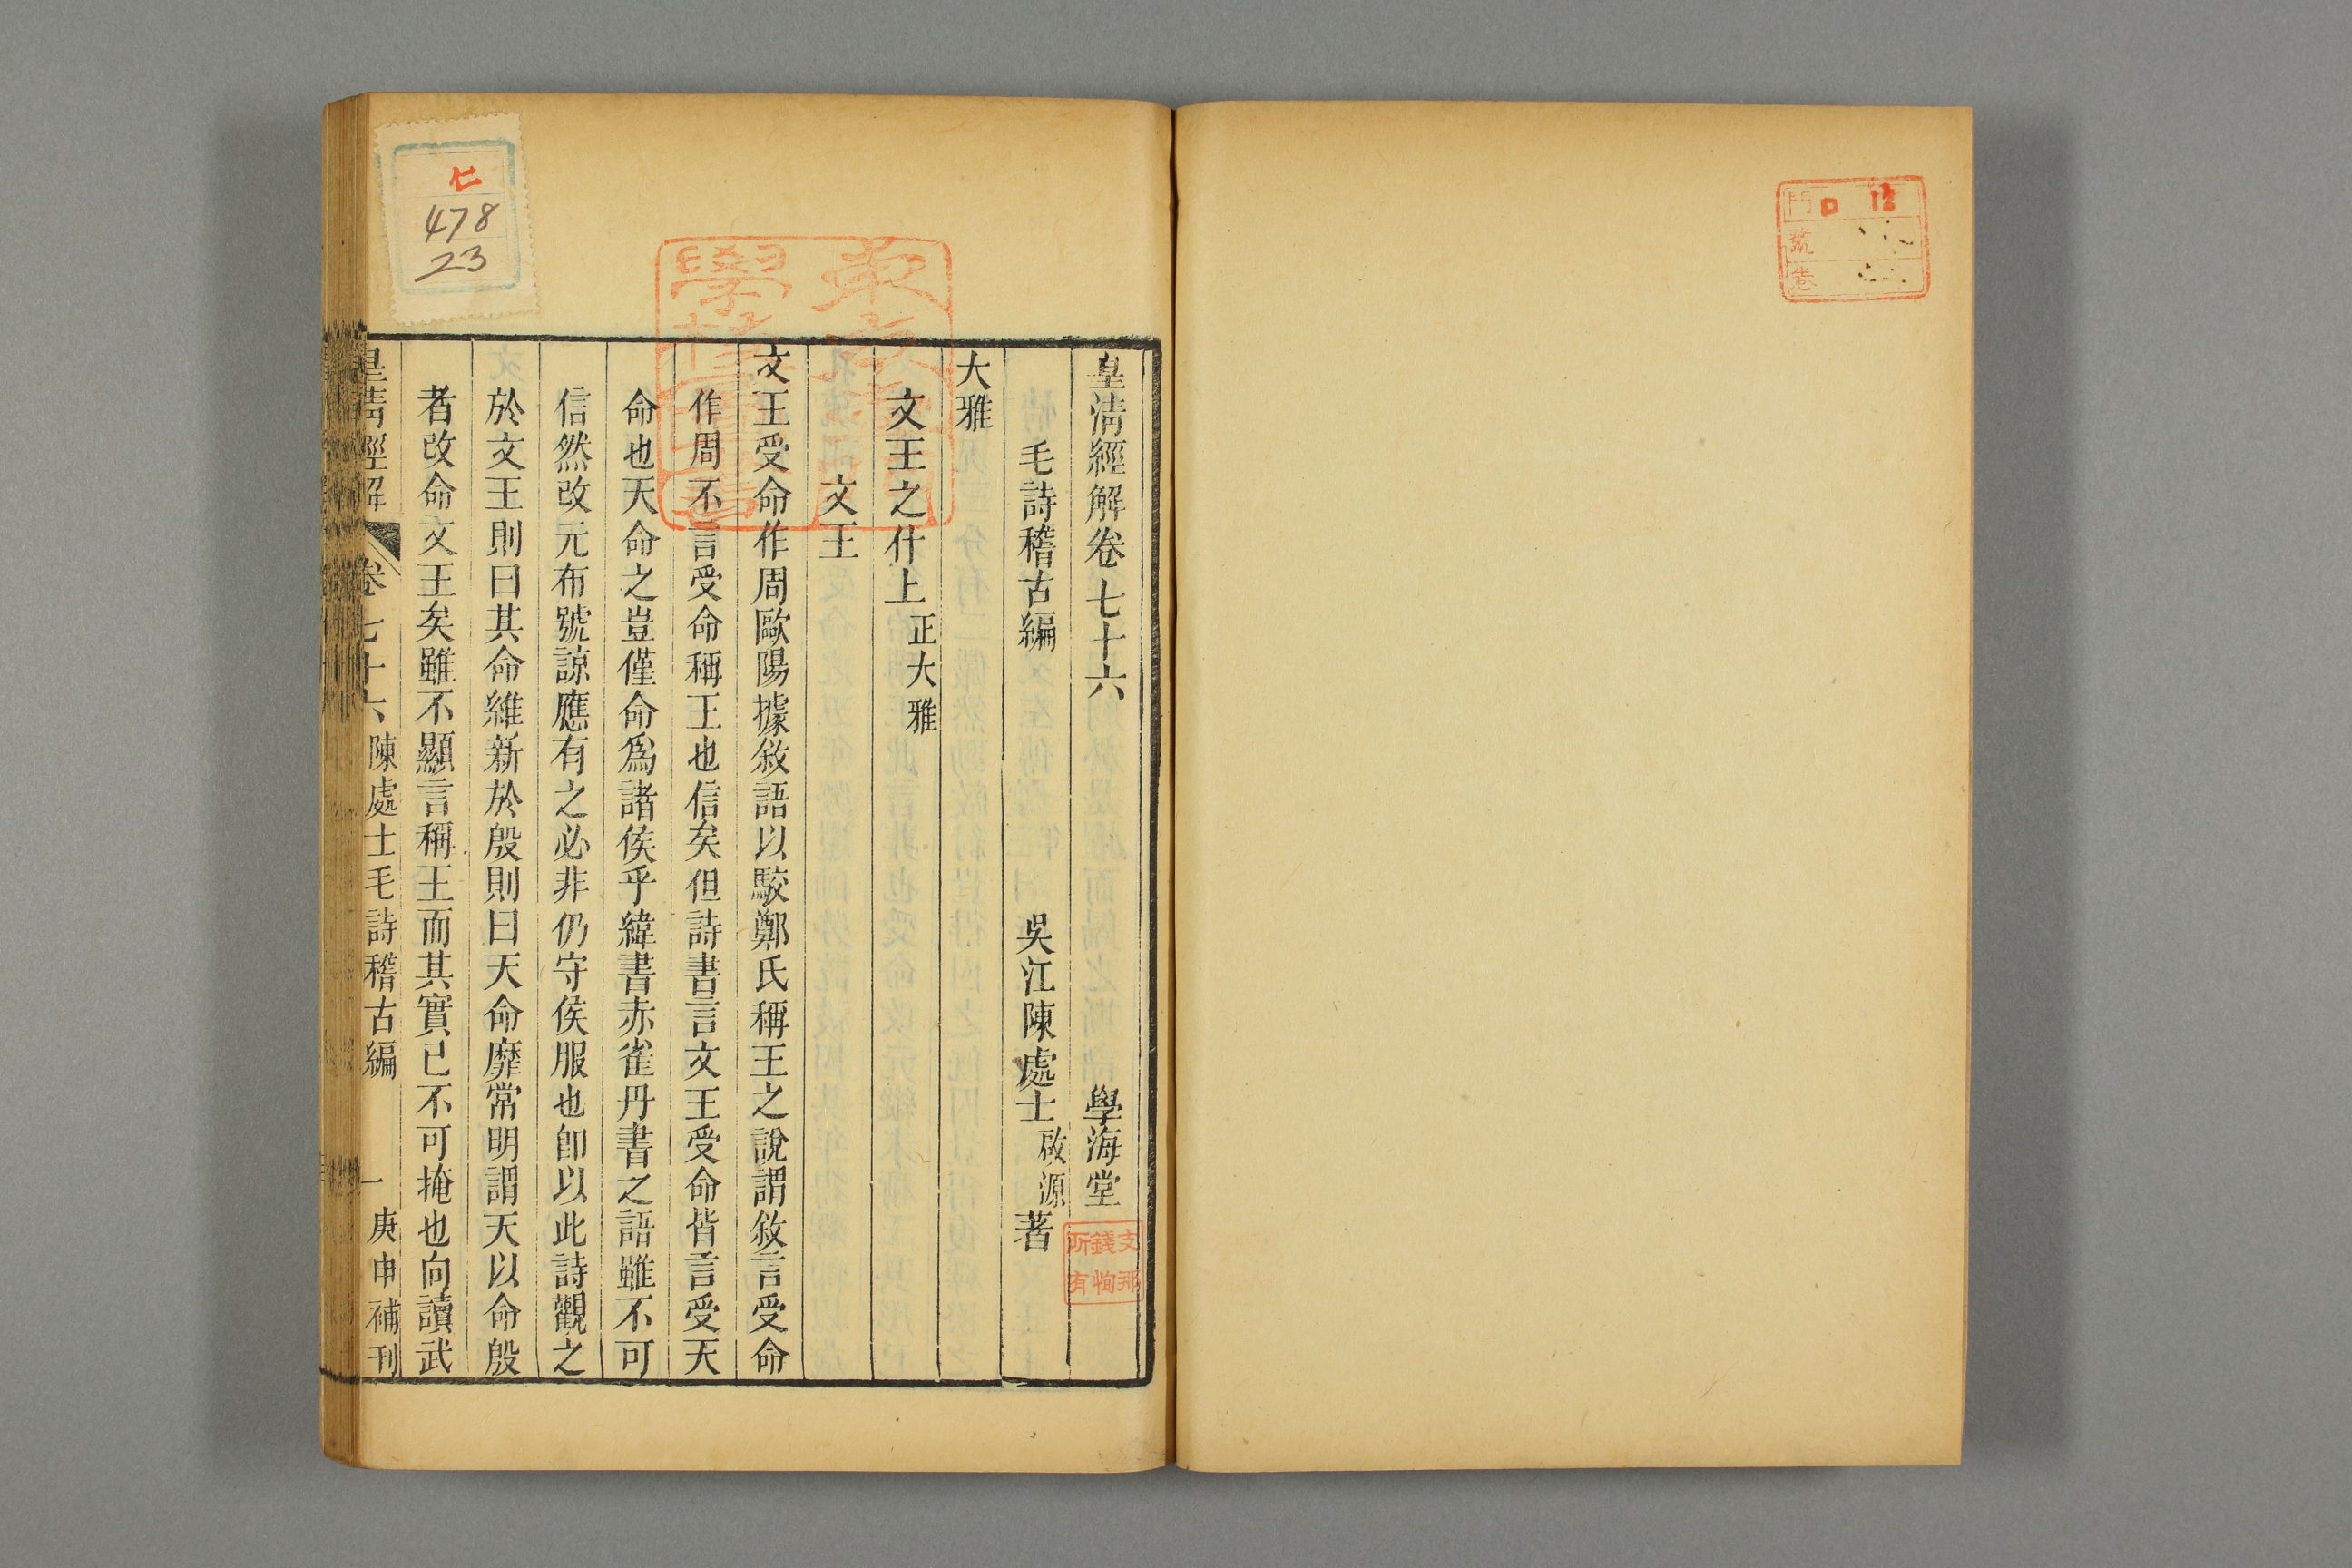 門 口 12
號
卷
皇清經解卷七十六 學海堂
毛詩稽古編 吳江陳處士啟源著
大雅
文王之什上正大雅
文王
文王受命作周歐陽據敘語以駮鄭氏稱王之說謂敘言受命
作周不言受命稱王也信矣但詩書言文王受命皆言受天
命也天命之豈僅命爲諸侯乎緯書赤雀丹書之語雖不可
信然改元布號諒應有之必非仍守侯服也卽以此詩觀之
於文王則曰其命維新於殷則曰天命靡常明謂天以命殷
者改命文王矣雖不顯言稱王而其實已不可掩也向讀武
皇清經解 卷七十六陳處士毛詩稽古編 一 庚申補刊
支那
錢恂
所有
仁
478
23